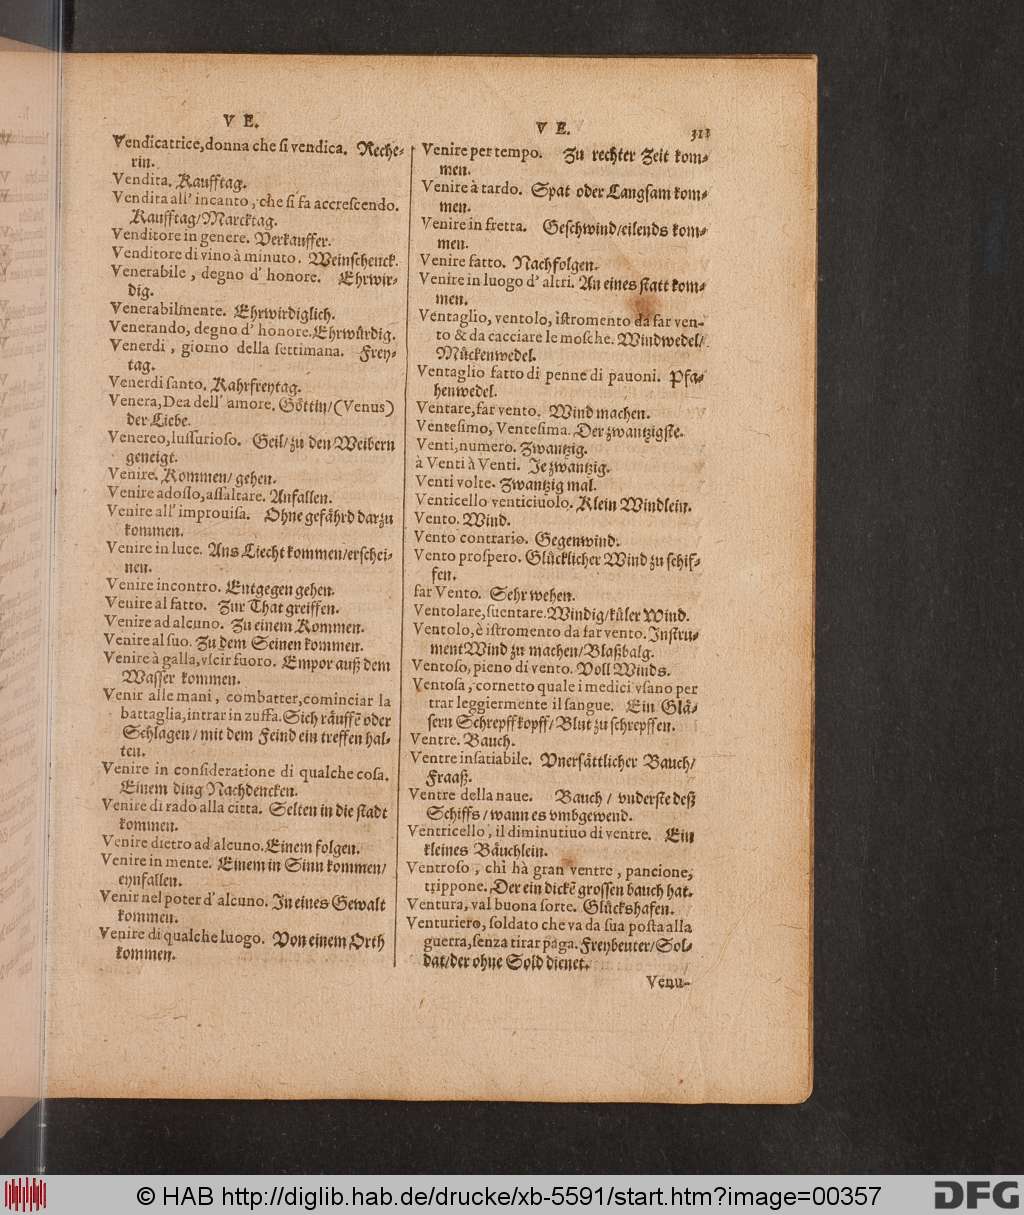 V E.
Vendicatrice, donna che si vendica. Reche-
rin.
Vendita. Kaufftag.
Vendita all' incanto, che si fa accrescendo.
Kaufftag/Marcktag.
Venditore in genere. Verkauffer.
Venditore di vino à minuto. Weinschenck.
Venerabile, degno d' honore. Ehrwir-
dig.
Venerabilmente. Ehrwirdiglich.
Venerando, degno d' honore. Ehrwürdig.
Venerdi, giorno della settimana. Frey-
tag.
Venerdi santo. Kahrfreytag.
Venera, Dea dell' amore. Göttin/(Venus)
der Liebe.
Venereo, lussurioso. Geil/ zu den Weibern
geneigt.
Venire. Kommen/ gehen.
Venire adosso, assaltare. Anfallen.
Venire all' improuisa. Ohne gefährd darzu
kommen.
Venire in luce. Ans Liecht kommen/erschei-
nen.
Venire incontro. Entgegen gehen.
Venire al fatto. Zur That greiffen.
Venire ad alcuno. Zu einem Kommen.
Venire al suo. Zu dem Seinen kommen.
Venire à galla, vscir fuoro. Empor auß dem
Wasser kommen.
Venir alle mani, combatter, cominciar la
battaglia, intrar in zuffa. Sich räuffē oder
Schlagen/ mit dem Feind ein treffen hal-
ten.
Venire in consideratione di qualche cosa.
Einem ding Nachdencken.
Venire di rado alla citta. Selten in die stadt
kommen.
Venire dietro ad alcuno. Einem folgen.
Venire in mente. Einem in Sinn kommen/
eynfallen.
Venir nel poter d' alcuno. In eines Gewalt
kommen.
Venire di qualche luogo. Von einem Orth
kommen.
V E.
Venire per tempo. Zu rechter Zeit kom-
men.
Venire à tardo. Spat oder Langsam kom-
men.
Venire in fretta. Geschwind/eilends kom-
men.
Venire fatto. Nachfolgen.
Venire in luogo d' altri. An eines statt kom-
men.
Ventaglio, ventolo, istromento da far ven-
to & da cacciare le mosche. Windwedel/
Mückenwedel.
Ventaglio fatto di penne di pauoni. Pfa-
henwedel.
Ventare, far vento. Wind machen.
Ventesimo, Ventesima. Der zwantzigste.
Venti, numero. Zwantzig.
à Venti à Venti. Je zwantzig.
Venti volte. Zwantzig mal.
Venticello venticiuolo. Klein Windlein.
Vento. Wind.
Vento contrario. Gegenwind.
Vento prospero. Glücklicher Wind zu schif-
fen.
far Vento. Sehr wehen.
Ventolare, suentare. Windig/küler Wind.
Ventolo, è istromento da far vento. Instru-
ment Wind zu machen/Blaßbalg.
Ventoso, pieno di vento. Voll Winds.
Ventosa, cornetto quale i medici vsano per
trar leggiermente il sangue. Ein Glä-
sern Schrepffkopff/ Blut zu schrepffen.
Ventre. Bauch.
Ventre insatiabile. Vnersättlicher Bauch/
Fraaß.
Ventre della naue. Bauch / vnderste deß
Schiffs / wann es vmbgewend.
Ventricello, il diminutiuo di ventre. Ein
kleines Bäuchlein.
Ventroso, chi hà gran ventre, pancione,
trippone. Der ein dickē grossen bauch hat.
Ventura, val buona sorte. Glückshafen.
Venturiero, soldato che va da sua posta alla
guerra, senza tirar paga. Freybeuter/Sol-
dat/der ohne Sold dienet.
Venu-
© HAB http://diglib.hab.de/drucke/xb-5591/start.htm?image=00357
DFG